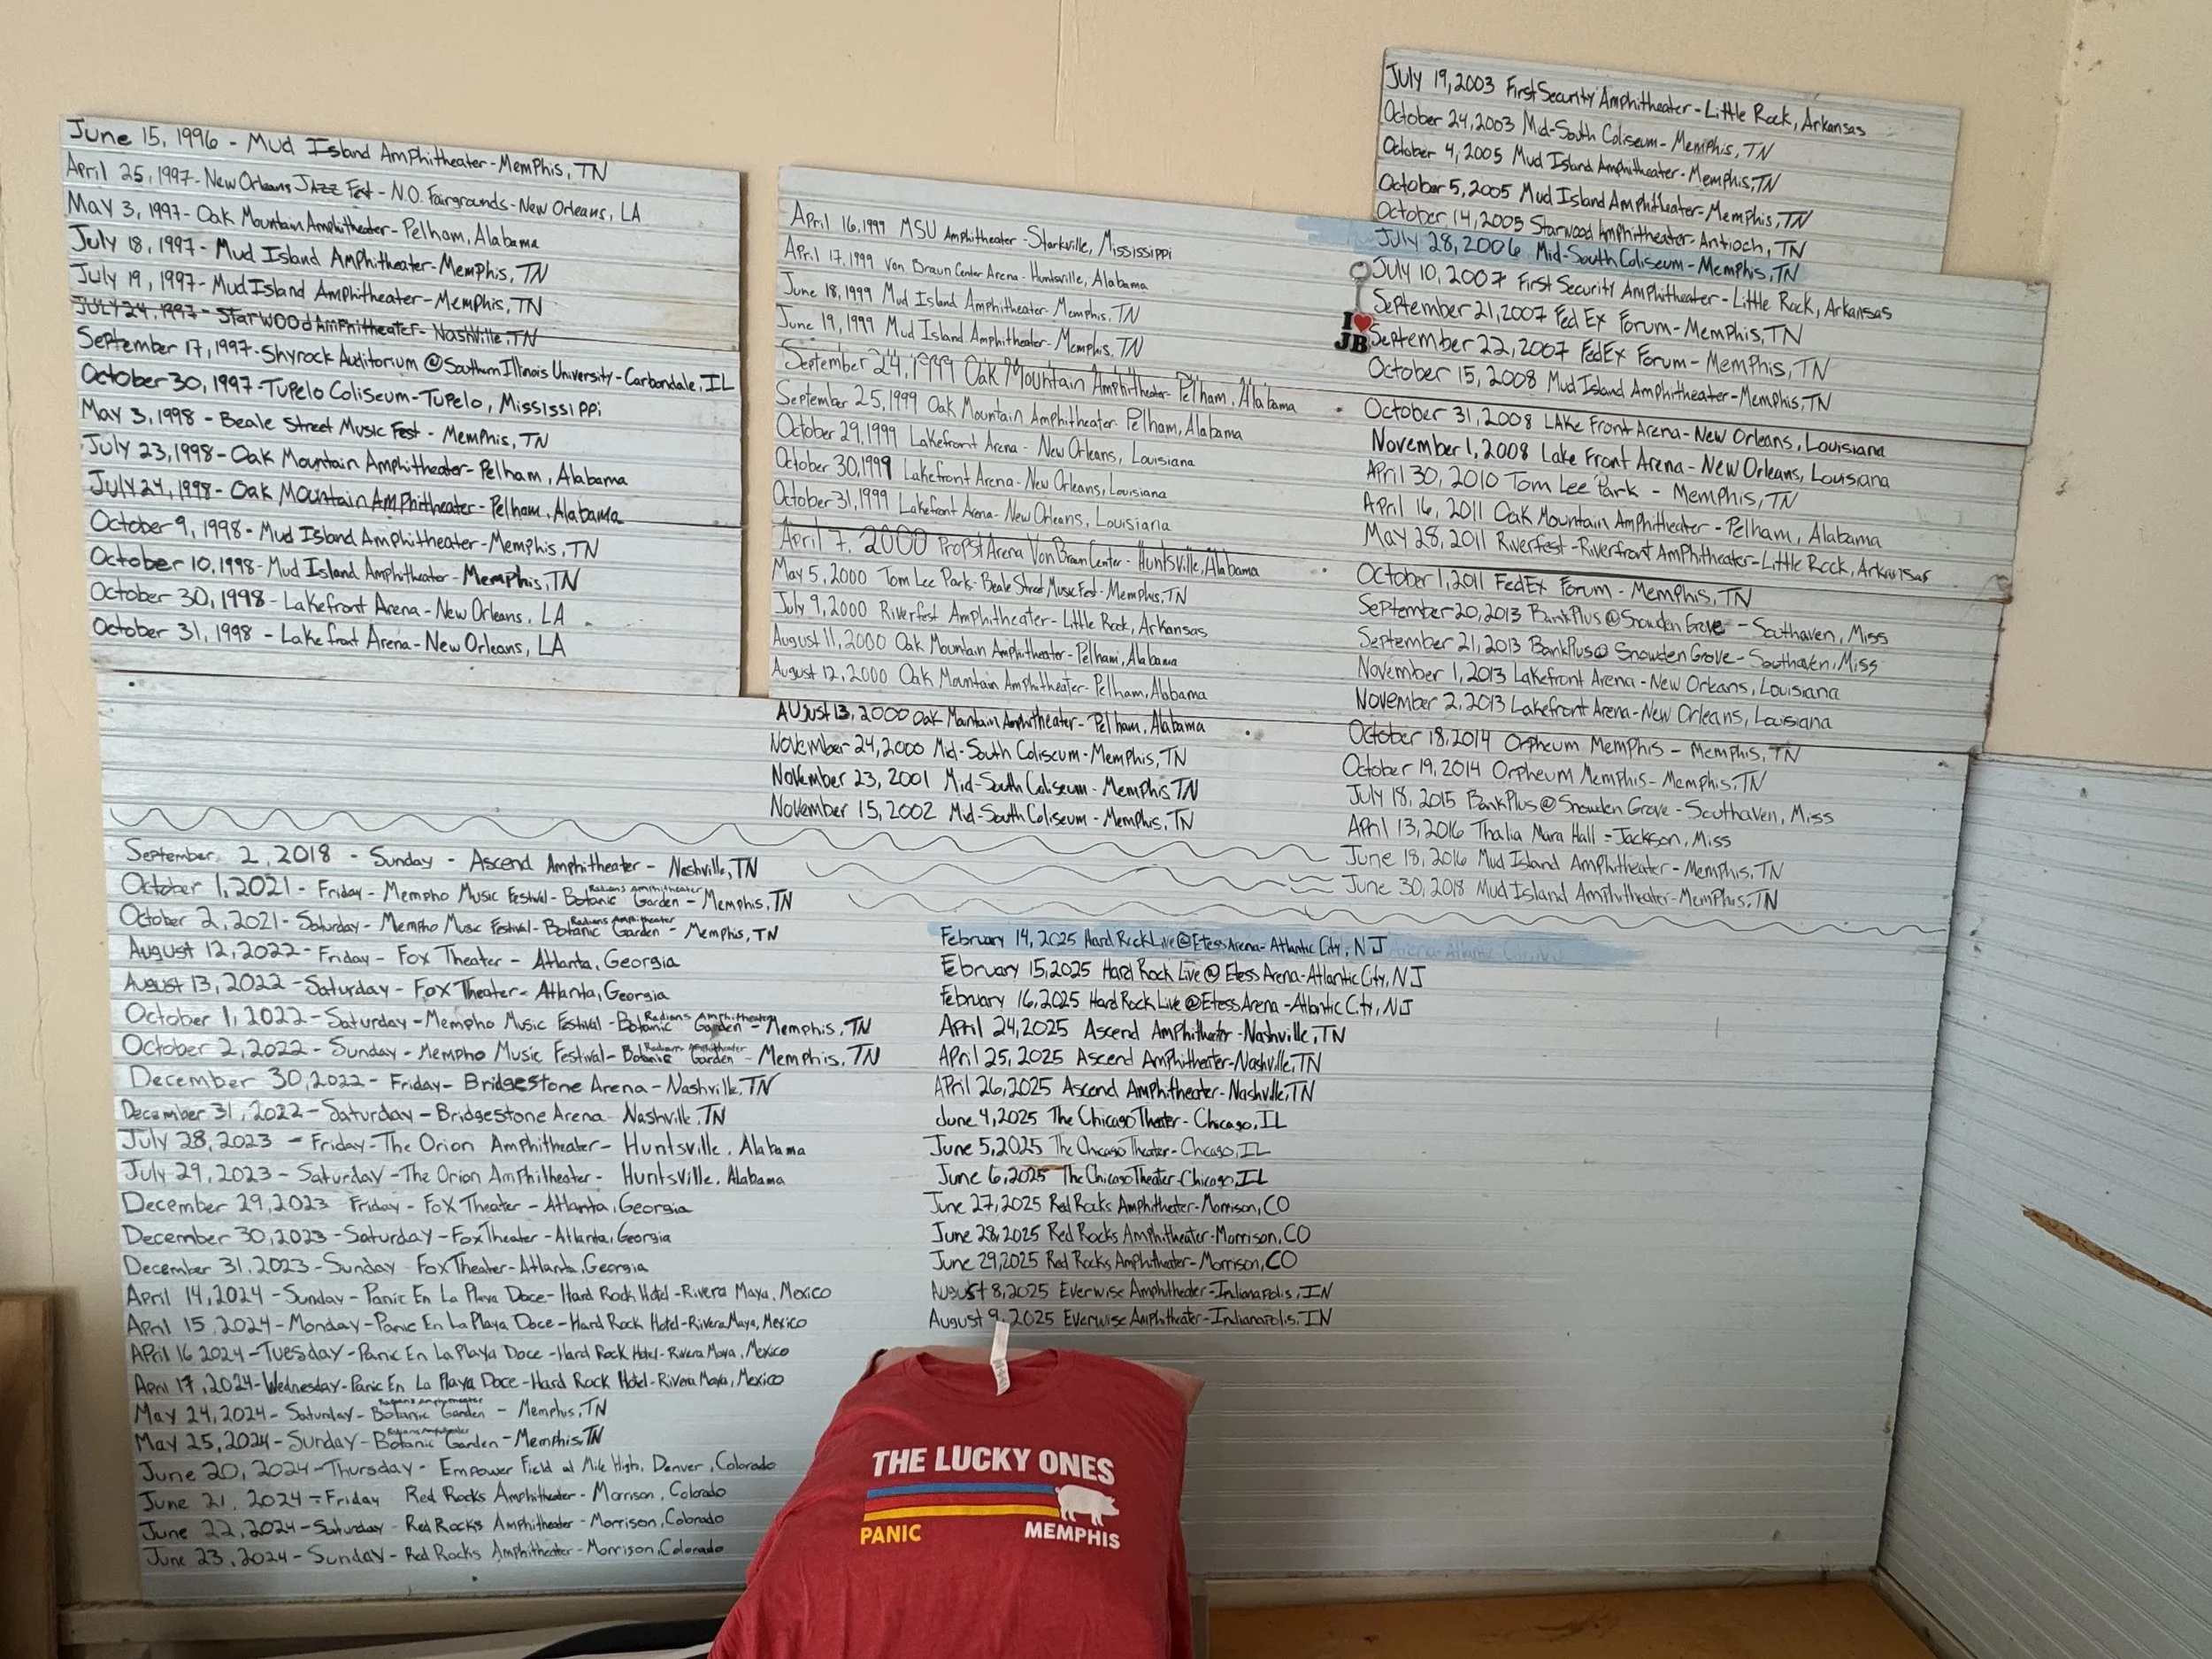 June 15, 1996 - Mud Island Amphitheater-Memphis, TN
April 25, 1997-New Orleans Jazz Fest - N.O. Fairgrounds-New Orleans, LA
May 3, 1997- Oak Mountain Amphitheater- Pelham, Alabama
July 18, 1997- Mud Island Amphitheater-Memphis, TN
July 19, 1997- Mud Island Amphitheater-Memphis, TN
July 24, 1997- Starwood Amphitheater- Nashville, TN
September 17, 1997-Shyrock Auditorium @ Southern Illinois University-Carbondale, IL
October 30, 1997-Tupelo Coliseum-Tupelo, Mississippi
May 3, 1998 - Beale Street Music Fest - Memphis, TN
July 23, 1998- Oak Mountain Amphitheater-Pelham, Alabama
July 24, 1998- Oak Mountain Amphitheater-Pelham, Alabama
October 9, 1998- Mud Island Amphitheater-Memphis, TN
October 10, 1998-Mud Island Amphitheater-Memphis, TN
October 30, 1998-Lakefront Arena-New Orleans, LA
October 31, 1998 - Lakefront Arena-New Orleans, LA
April 16, 1999 MSU Amphitheater -Starkville, Mississippi
April 17, 1999 Von Braun Center Arena- Huntsville, Alabama
June 18, 1999 Mud Island Amphitheater-Memphis, TN
June 19, 1999 Mud Island Amphitheater- Memphis, TN
September 24, 1999 Oak Mountain Amphitheater Pelham, Alabama
September 25, 1999 Oak Mountain Amphitheater Pelham, Alabama
October 29, 1999 Lakefront Arena - New Orleans, Louisiana
October 30, 1999 Lakefront Arena-New Orleans, Louisiana
October 31, 1999 Lakefront Arena-New Orleans, Louisiana
April 7, 2000 Propst Arena Von Braun Center- Huntsville, Alabama
May 5, 2000 Tom Lee Park-Beale Street Music Fest-Memphis, TN
July 9, 2000 Riverfest Amphitheater-Little Rock, Arkansas
August 11, 2000 Oak Mountain Amphitheater-Pelham, Alabama
August 12, 2000 Oak Mountain Amphitheater-Pelham, Alabama
August 13, 2000 Oak Mountain Amphitheater- Pelham, Alabama
November 24, 2000 Mid-South Coliseum-Memphis, TN
November 23, 2001 Mid-South Coliseum-Memphis TN
November 15, 2002 Mid-South Coliseum-Memphis, TN
July 19, 2003 First Security Amphitheater-Little Rock, Arkansas
October 24, 2003 Mid-South Coliseum- Memphis, TN
October 4, 2005 Mud Island Amphitheater-Memphis, TN
October 5, 2005 Mud Island Amphitheater-Memphis, TN
October 14, 2005 Starwood Amphitheater-Antioch, TN
July 28, 2006 Mid-South Coliseum-Memphis, TN
July 10, 2007 First Security Amphitheater-Little Rock, Arkansas
September 21, 2007 Fed Ex Forum-Memphis, TN
September 22, 2007 FedEx Forum- Memphis, TN
October 15, 2008 Mud Island Amphitheater-Memphis, TN
October 31, 2008 Lake Front Arena-New Orleans, Louisiana
November 1, 2008 Lake Front Arena-New Orleans, Louisiana
April 30, 2010 Tom Lee Park - Memphis, TN
April 16, 2011 Oak Mountain Amphitheater-Pelham, Alabama
May 28, 2011 Riverfest-Riverfront Amphitheater-Little Rock, Arkansas
October 1, 2011 FedEx Forum - Memphis, TN
September 20, 2013 BankPlus @ Snowden Grove - Southaven, Miss
September 21, 2013 BankPlus @ Snowden Grove- Southaven, Miss
November 1, 2013 Lakefront Arena-New Orleans, Louisiana
November 2, 2013 Lakefront Arena-New Orleans, Louisiana
October 18, 2014 Orpheum Memphis - Memphis, TN
October 19, 2014 Orpheum Memphis- Memphis, TN
July 18, 2015 BankPlus @ Snowden Grove -Southaven, Miss
April 13, 2016 Thalia Mara Hall - Jackson, Miss
June 18, 2016 Mud Island Amphitheater- Memphis, TN
June 30, 2018 Mud Island Amphitheater-Memphis, TN
I ♥
JB
September 2, 2018 - Sunday - Ascend Amphitheater - Nashville, TN
October 1, 2021- Friday- Mempho Music Festival- Radians Amphitheater Botanic Garden - Memphis, TN
October 2, 2021- Saturday- Mempho Music Festival- Radians Amphitheater Botanic Garden - Memphis, TN
August 12, 2022-Friday- Fox Theater - Atlanta, Georgia
August 13, 2022-Saturday- Fox Theater- Atlanta, Georgia
October 1, 2022-Saturday-Mempho Music Festival- Radians Amphitheater Botanic Garden -Memphis, TN
October 2, 2022- Sunday- Mempho Music Festival- Radians Amphitheater Botanic Garden - Memphis, TN
December 30, 2022- Friday- Bridgestone Arena-Nashville, TN
December 31, 2022-Saturday-Bridgestone Arena- Nashville, TN
July 28, 2023 - Friday-The Orion Amphitheater- Huntsville, Alabama
July 29, 2023- Saturday -The Orion Amphitheater- Huntsville, Alabama
December 29, 2023 Friday - Fox Theater - Atlanta, Georgia
December 30, 2023-Saturday-Fox Theater -Atlanta, Georgia
December 31, 2023-Sunday Fox Theater-Atlanta, Georgia
April 14, 2024 -Sunday- Panic En La Playa Doce- Hard Rock Hotel-Rivera Maya, Mexico
April 15, 2024-Monday-Panic En La Playa Doce-Hard Rock Hotel-Rivera Maya, Mexico
April 16 2024-Tuesday-Panic En La Playa Doce -Hard Rock Hotel-Rivera Maya, Mexico
April 17, 2024-Wednesday-Panic En La Playa Doce-Hard Rock Hotel-Rivera Maya, Mexico
May 24, 2024- Saturday- Radians Amphitheater Botanic Garden - Memphis, TN
May 25, 2024-Sunday- Radians Amphitheater Botanic Garden-Memphis, TN
June 20, 2024-Thursday- Empower Field at Mile High, Denver, Colorado
June 21, 2024-Friday Red Rocks Amphitheater- Morrison, Colorado
June 22, 2024-Saturday- Red Rocks Amphitheater-Morrison, Colorado
June 23, 2024-Sunday- Red Rocks Amphitheater-Morrison, Colorado
February 14, 2025 Hard Rock Live @ Etess Arena-Atlantic City, NJ
February 15, 2025 Hard Rock Live @ Etess Arena-Atlantic City, NJ
February 16, 2025 Hard Rock Live @ Etess Arena -Atlantic City, NJ
April 24, 2025 Ascend Amphitheater-Nashville, TN
April 25, 2025 Ascend Amphitheater-Nashville, TN
April 26, 2025 Ascend Amphitheater-Nashville, TN
June 4, 2025 The Chicago Theater- Chicago, IL
June 5, 2025 The Chicago Theater-Chicago, IL
June 6, 2025 The Chicago Theater-Chicago, IL
June 27, 2025 Red Rocks Amphitheater-Morrison, CO
June 28, 2025 Red Rocks Amphitheater-Morrison, CO
June 29, 2025 Red Rocks Amphitheater-Morrison, CO
August 8, 2025 Everwise Amphitheater-Indianapolis, IN
August 9, 2025 Everwise Amphitheater-Indianapolis, IN
THE LUCKY ONES
PANIC MEMPHIS